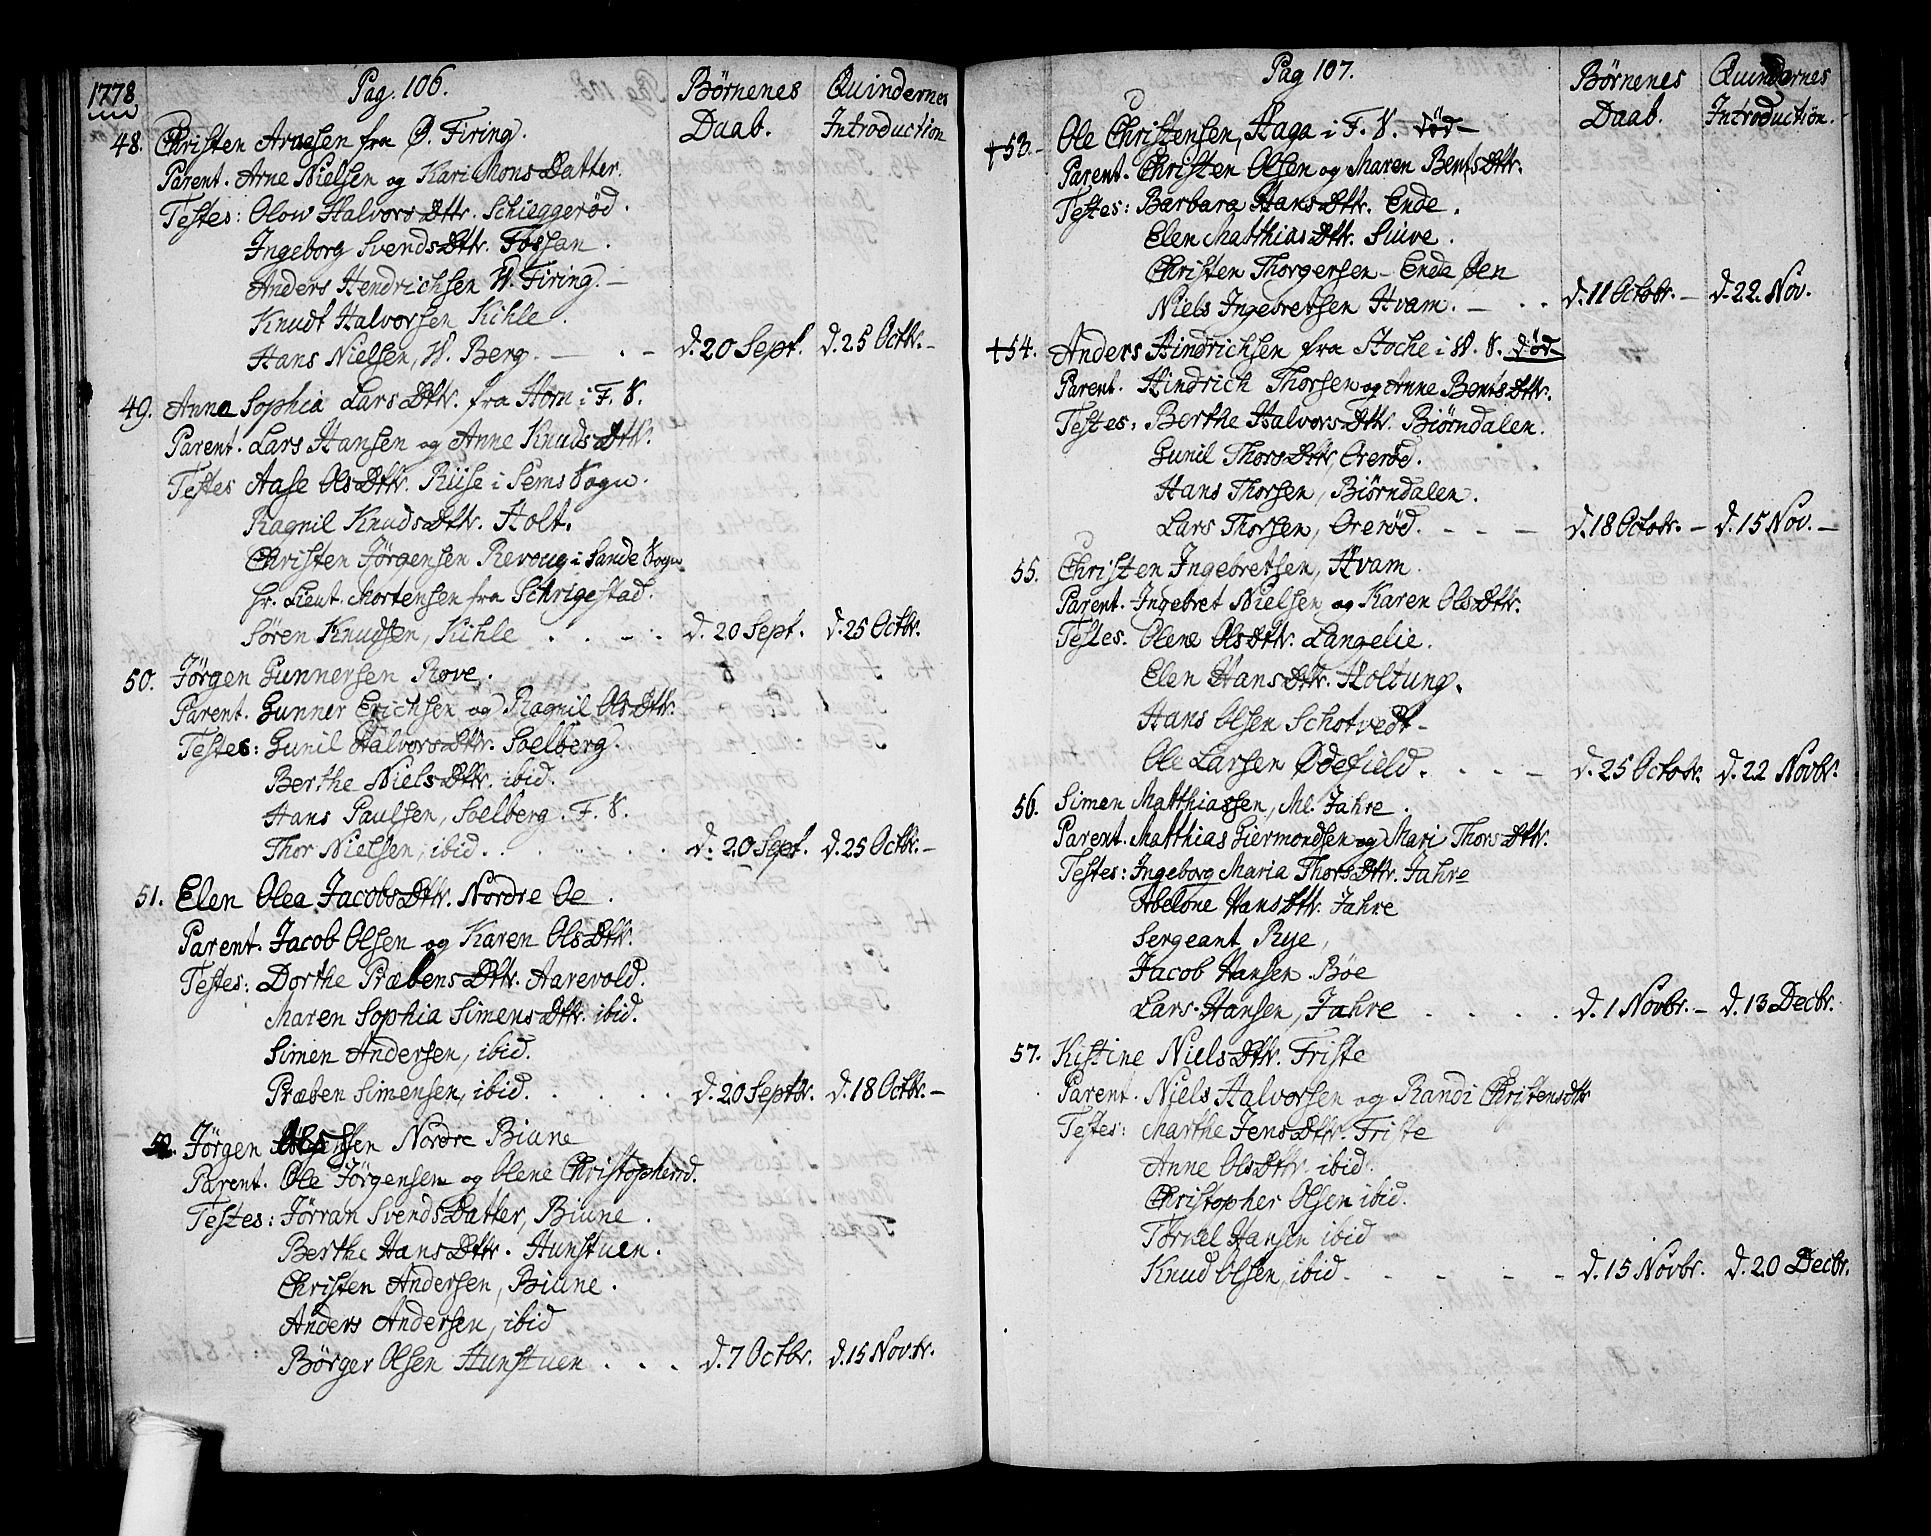 1778
Pag. 106. Børnenes Quindernes
Daab. Introduction
48. Christen Arnesen fra Ø. Firing.
Parent. Arne Nielsen og Kari Mons Datter.
Testes: Olow Halvors Dttr. Schieggerød.
Ingeborg Svends Dttr. Fossan.
Anders Hendrichsen W. Firing. –
Knudt Halvorsen Kihle.
Hans Nielsen, W. Berg. – . – d. 20 Sept. d. 25 Octbr. –
49. Anna Sophia Lars Dttr. fra Horn i F. S.
Parent. Lars Hansen og Anne Knuds Dttr.
Testes Aase Ols Dttr. Riise i Sems Sogn.
Ragnil Knuds Dttr. Holt.
Christen Jørgensen Revoug i Sande Sogn
Hr. Lieut. Mortensen fra Schrigestad.
Søren Knudsen, Kihle . . – . d. 20 Sept. d. 25 Octbr.
50. Jørgen Gunnersen Rove.
Parent. Gunner Erichsen og Ragnil Ols Dttr.
Testes: Gunil Halvors Dttr. Soelberg.
Berthe Niels Dttr. ibid.
Hans Paulsen, Soelberg. F. S.
Thor Nielsen, ibid. . . . . . d. 20 Sept. d. 25 Octbr. –
51. Elen Olea Jacobs Dttr. Nordre Oe.
Parent. Jacob Olsen og Karen Ols Dttr.
Testes: Dorthe Præbens Dttr. Aarevold.
Maren Sophia Simens Dttr. ibid.
Simen Andersen, ibid.
Præben Simensen, ibid. . . . . d. 20 Septbr. d. 18 Octbr. –
52. Jørgen Olssen Nordre Biune
Parent. Ole Jørgensen og Olene Christophersd.
Testes: Jørran Svends Datter, Biune.
Berthe Hans Dttr. Hunstuen.
Christen Andersen, Biune.
Anders Andersen, ibid
Børger Olsen Hunstuen . . . d. 7 Octbr. d. 15 Novbr.
Pag 107. Børnenes Quindernes
Daab. Introduction.
†53. – Ole Christensen, Haga i F. S. død –
Parent. Christen Olsen og Maren Bents Dttr.
Testes: Barbara Hans Dttr. Ende.
Elen Matthias Dttr. Siuve.
Christen Thorgersen – Ende Øen
Niels Ingebretsen Hvam. – . . d. 11 Octobr. – d. 22. Nov.
†54. Anders Hindrichsen fra Hoche i W. S. død –
Parent. Hindrich Thorsen og Anne Bents Dttr.
Testes: Berthe Halvors Dttr. Biørndalen.
Gunil Thors Dttr Orerød.
Hans Thorsen, Biørndalen.
Lars Thorsen, Orerød. – – – d. 18 Octobr. – d. 15 Nov. –
55. Christen Ingebretsen, Hvam.
Parent. Ingebret Nielsen og Karen Ols Dttr.
Testes. Olene Ols Dttr. Langelie.
Elen Hans Dttr. Holtung.
Hans Olsen Schotvedt –
Ole Larsen Ødefield. . . – d. 25 Octobr. d. 22 Novbr.
56. Simen Matthiassen, Ml. Jahre.
Parent. Matthias Giermondsen og Mari Thors Dttr.
Testes: Ingeborg Maria Thors Dttr. Jahre
Abelone Hans Dttr. Jahre
Sergeant Rye,
Jacob Hansen. Bøe
Lars Hansen, Jahre . . . . d. 1 Novbr. – d. 13 Decbr.
57. Kistine Niels Dttr. Friste
Parent. Niels Halvorsen og Randi Christensdtr
Testes: Marthe Jens Dttr. Friste
Anne Ols Dttr. ibid.
Christopher Olsen ibid.
Tørkel Hansen ibid –
Knud Olsen, ibid. – – – – d. 15 Novbr. d. 20 Decbr.